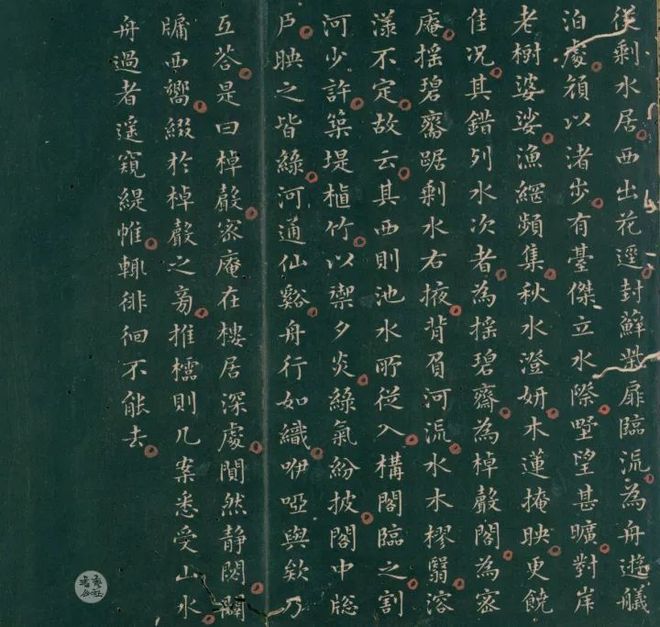 從剩水居西出花逕封蘚柴扉臨流為舟遊艤
泊處以渚步有臺傑立水際墅望甚曠對岸
老樹婆娑漁網頻集秋水澄妍木蓮掩映更饒
佳况其錯列水次者為搖碧齋為棹聲閣為密
庵搖碧齋踞剩水右掖背眉河流水木樛翳溶
漾不定故云其西則池水所從入構閣臨之割
河少許築堤植竹以禦夕炎綠氣紛披閣中牕
戶映之皆綠河通仙谿舟行如織咿啞與欸乃
互荅是曰棹聲密庵在樓居深處闃然静閟闢
牖西嚮綴於棹聲之旁推櫺則几案悉受山水
舟過者遥窺緹帷輙徘徊不能去